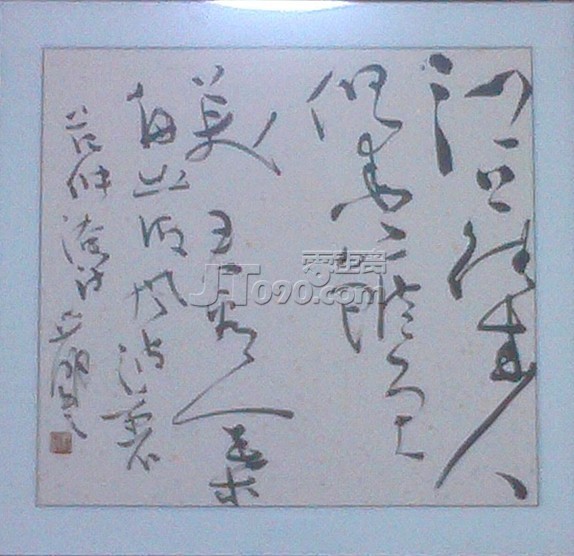 江上往来人
但爱鲈鱼
美君看一叶
舟出没风波里
范仲淹诗
JT090.com